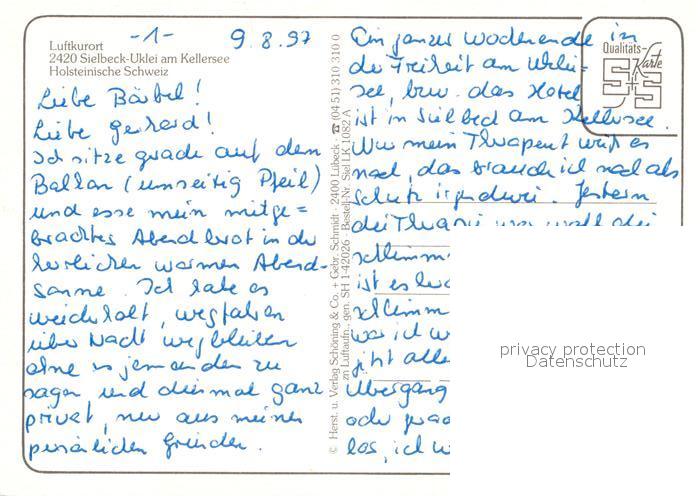 -1-
9.8.97
Luftkurort
2420 Sielbeck-Uklei am Kellersee
Holsteinische Schweiz
Liebe Bärbel!
Liebe Gerhard!
Ich sitze grade auf dem
Balkon (umseitig Pfeil)
und esse mein mitge=
brachtes Abendbrot in der
herlichen warmen Abend-
sonne. Ich habe es
wiederholt, wegfahren
über Nacht wegbleiben
ohne es jemanden zu
sagen, und diesmal ganz
privat, nur aus meinen
persönlichen Gründen.
© Herst. u. Verlag Schöning & Co. + Gebr. Schmidt · 2400 Lübeck · ☎ (04 51) 310 310 0
zn Luftaufn., gen. SH 1-42026 · Bestell-Nr. Siel LK 1082 A
Qualitäts-
Karte
S+S
Ein ganzes Wochenende in
der Freiheit am Uklei-
see, bzw. das Hotel
ist in Sielbeck am Kellersee.
Nur mein Therapeut weiß es
noch, das brauch ich noch als
Schutz irgendwie. Gestern
die Therapie war wohl die
schlimm
ist es
schlimm
war ich
jetzt alle
Übergang
oder
los, ich
privacy protection
Datenschutz